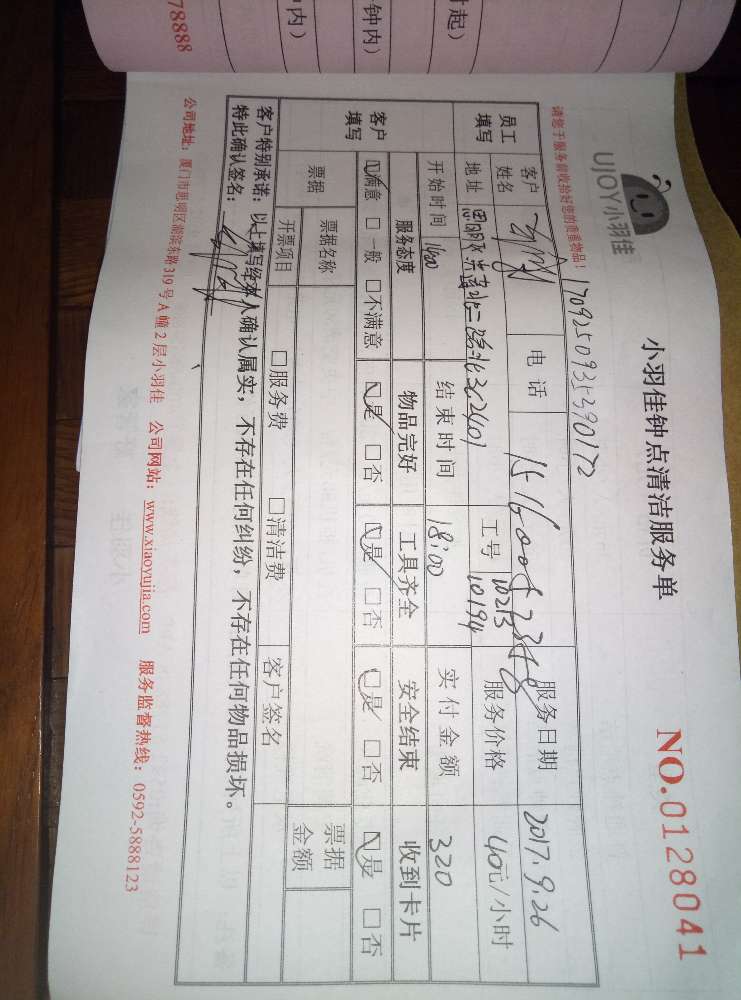 78888
钟内）
UJOY小羽佳
小羽佳钟点清洁服务单
NO.0128041
请您于服务前收拾好您的贵重物品！
1709250935390172
员工填写
客户姓名
电话
服务日期 2017.9.26
地址
工号 10213 10194
服务价格 40元/小时
开始时间
结束时间 18:00
实付金额 320
客户填写
服务态度 物品完好 工具齐全 安全结束 收到卡片
☑满意 □一般 □不满意 ☑是 □否 ☑是 □否 ☑是 □否 ☑是 □否
票据
票据名称
票据金额
开票项目 □服务费 □清洁费 客户签名
客户特别承诺：以上填写经本人确认属实，不存在任何纠纷，不存在任何物品损坏。
特此确认签名：
公司地址：厦门市思明区湖滨东路319号A幢2层小羽佳 公司网站：www.xiaoyujia.com 服务监督热线：0592-5888123